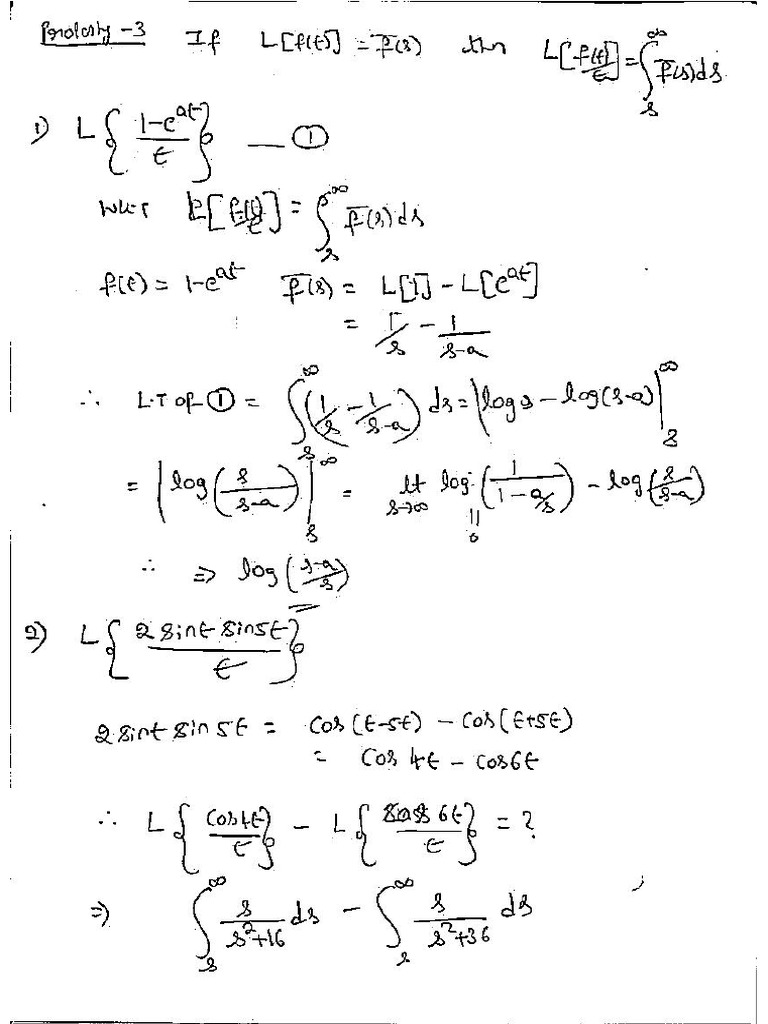 Property -3 If L[f(t)] = f̄(s) then L[f(t)/t] = ∫_s^∞ f̄(s)ds
1) L{(1-e^{at})/t} — ①
W.K.T L[f(t)/t] = ∫_s^∞ f̄(s)ds
f(t) = 1-e^{at} f̄(s) = L[1] - L[e^{at}]
= 1/s - 1/(s-a)
∴ L.T of ① = ∫_s^∞ (1/s - 1/(s-a)) ds = |log s - log(s-a)|_s^∞
= |log(s/(s-a))|_s^∞ = lt_{s→∞} log(1/(1-a/s)) - log(s/(s-a))
|| 0
∴ ⇒ log((s-a)/s)
2) L{2 sint sin5t / t}
2 sint sin 5t = cos(t-5t) - cos(t+5t)
= cos 4t - cos6t
∴ L{cos4t / t} - L{cos 6t / t} = ?
⇒ ∫_s^∞ s/(s²+16) ds - ∫_s^∞ s/(s²+36) ds